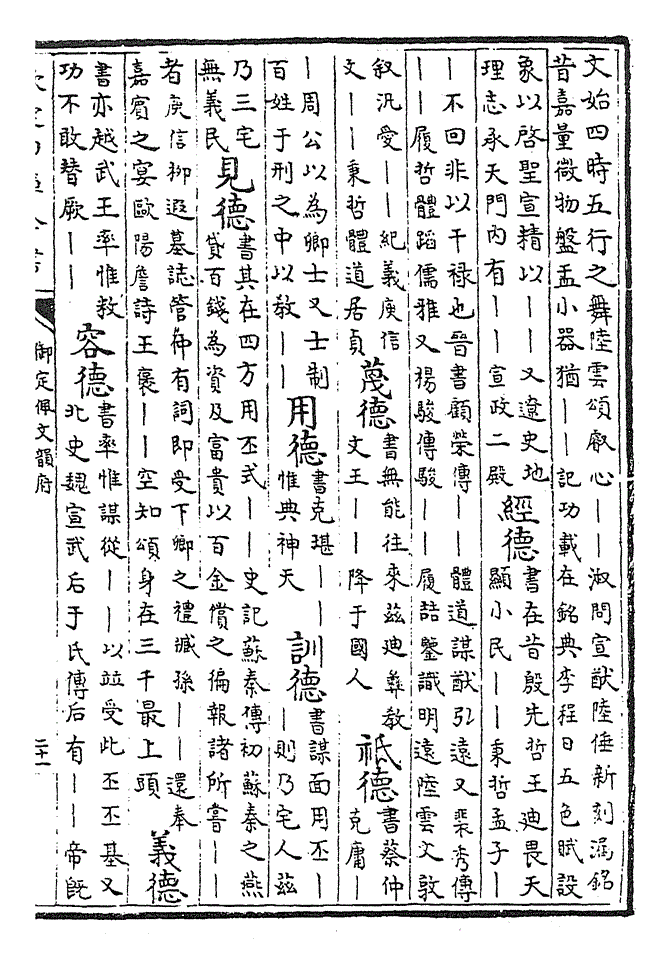 文始四時五行之舞陸雲頌厥心――淑問宣猷陸倕新刻漏銘
昔嘉量微物盤盂小器猶――記功載在銘典李程日五色賦設
象以啓聖宣精以――又遼史地
理志承天門內有――宣政二殿
經德
書在昔殷先哲王迪畏天
顯小民――秉哲孟子―
―不回非以干禄也晉書顧榮傳――體道謀猷弘遠又裴秀傳
――履哲體蹈儒雅又楊駿傳駿――履喆鑒識明遠陸雲文敦
叙汎愛――紀義庾信
文――秉哲體道居貞
蔑德
書無能往來兹迪彝教
文王――降于國人
祗德
書蔡仲
克庸―
―周公以為卿士又士制
百姓于刑之中以教――
用德
書克堪――
惟典神天
訓德
書謀面用丕―
―則乃宅人兹
乃三宅
無義民
見德
書其在四方用丕式――史記蘇秦傳初蘇秦之燕
貸百錢為資及富貴以百金償之徧報諸所嘗――
者庾信柳遐墓誌管仲有詞即受下卿之禮臧孫――還奉
嘉賓之宴歐陽詹詩王褒――空知頌身在三千最上頭
義德
書亦越武王率惟敉
功不敢替厥――
容德
書率惟謀從――以竝受此丕丕基又
北史魏宣武后于氏傳后有――帝旣
御定佩文韻府